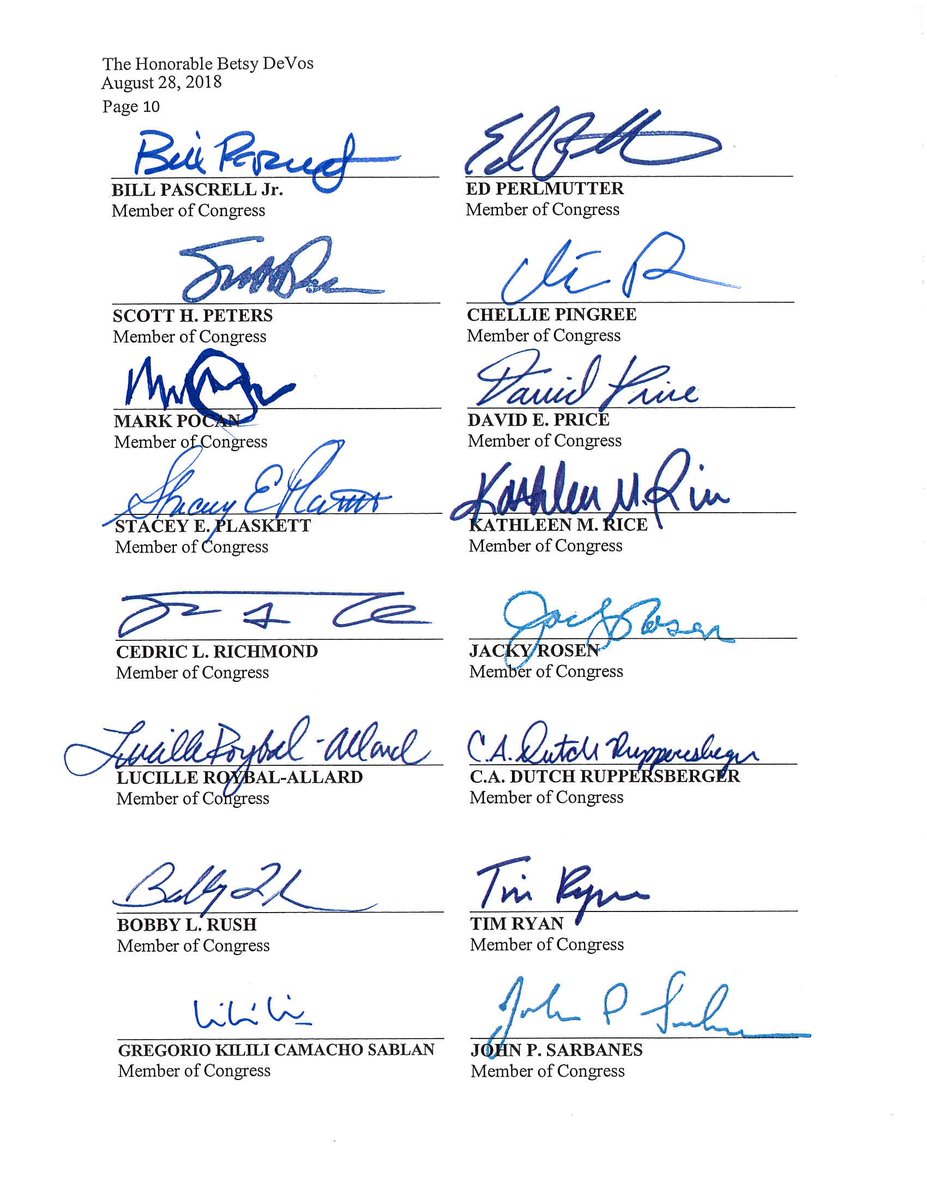 The Honorable Betsy DeVos
August 28, 2018
Page 10
Bill Pascrell
BILL PASCRELL Jr.
Member of Congress
Ed
ED PERLMUTTER
Member of Congress
SCOTT H. PETERS
Member of Congress
CHELLIE PINGREE
Member of Congress
MARK POCAN
Member of Congress
David Price
DAVID E. PRICE
Member of Congress
Stacey E. Plaskett
STACEY E. PLASKETT
Member of Congress
Kathleen M. Rice
KATHLEEN M. RICE
Member of Congress
CEDRIC L. RICHMOND
Member of Congress
Jacky Rosen
JACKY ROSEN
Member of Congress
Lucille Roybal-Allard
LUCILLE ROYBAL-ALLARD
Member of Congress
C.A. Dutch Ruppersberger
C.A. DUTCH RUPPERSBERGER
Member of Congress
Bobby
BOBBY L. RUSH
Member of Congress
Tim Ryan
TIM RYAN
Member of Congress
Kilili
GREGORIO KILILI CAMACHO SABLAN
Member of Congress
John P Sarbanes
JOHN P. SARBANES
Member of Congress